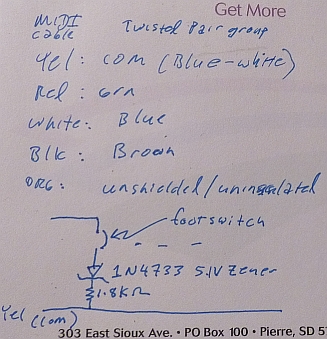 Get More
MIDI Twisted Pair group
cable
Yel: com (Blue-white)
Red: Grn
White: Blue
Blk: Brown
ORG: unshielded/uninsulated
footswitch
1N4733 5.1V Zener
1.8KΩ
Yel (com)
303 East Sioux Ave. • PO Box 100 • Pierre, SD 5